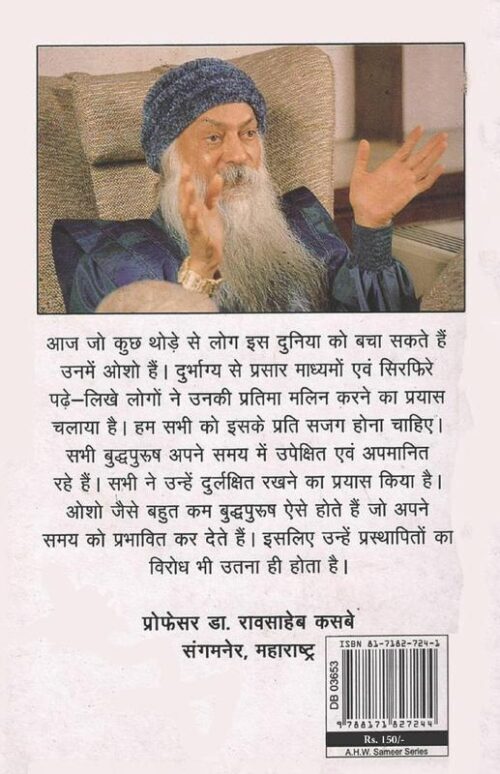 आज जो कुछ थोड़े से लोग इस दुनिया को बचा सकते हैं
उनमें ओशो हैं। दुर्भाग्य से प्रसार माध्यमों एवं सिरफिरे
पढ़े–लिखे लोगों ने उनकी प्रतिमा मलिन करने का प्रयास
चलाया है। हम सभी को इसके प्रति सजग होना चाहिए।
सभी बुद्धपुरूष अपने समय में उपेक्षित एवं अपमानित
रहे हैं। सभी ने उन्हें दुर्लक्षित रखने का प्रयास किया है।
ओशो जैसे बहुत कम बुद्धपुरूष ऐसे होते हैं जो अपने
समय को प्रभावित कर देते हैं। इसलिए उन्हें प्रस्थापितों का
विरोध भी उतना ही होता है।
प्रोफेसर डा. रावसाहेब कसबे
संगमनेर, महाराष्ट्र
ISBN 81-7182-724-1
DB 03653
9 788171 827244
Rs. 150/-
A.H.W. Sameer Series